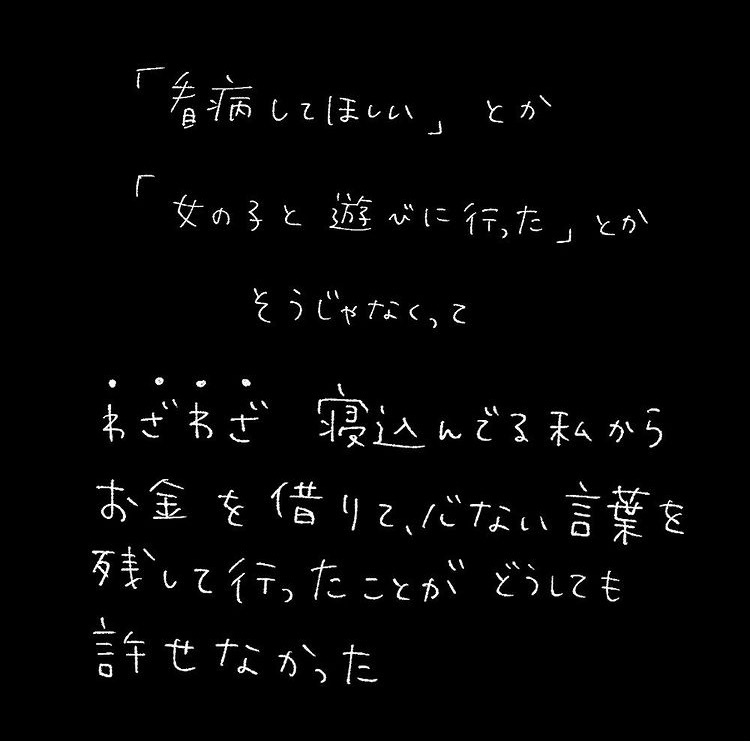 「看病してほしい」とか
「女の子と遊びに行った」とか
そうじゃなくって
わざわざ 寝込んでる私から
お金を借りて、心ない言葉を
残して行ったことがどうしても
許せなかった